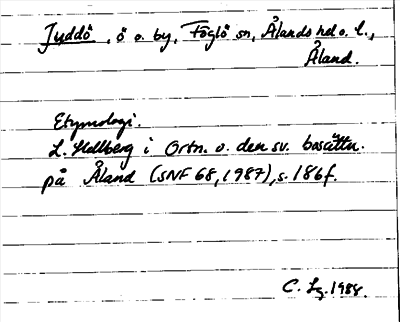 Juddö, ö o. by, Föglö sn, Ålands hd o. l.,
Åland.
Etymologi.
L. Hellberg i Ortn. o. den sv. bosättn.
på Åland (SNF 68, 1987), s. 186f.
C. Lg. 1988.